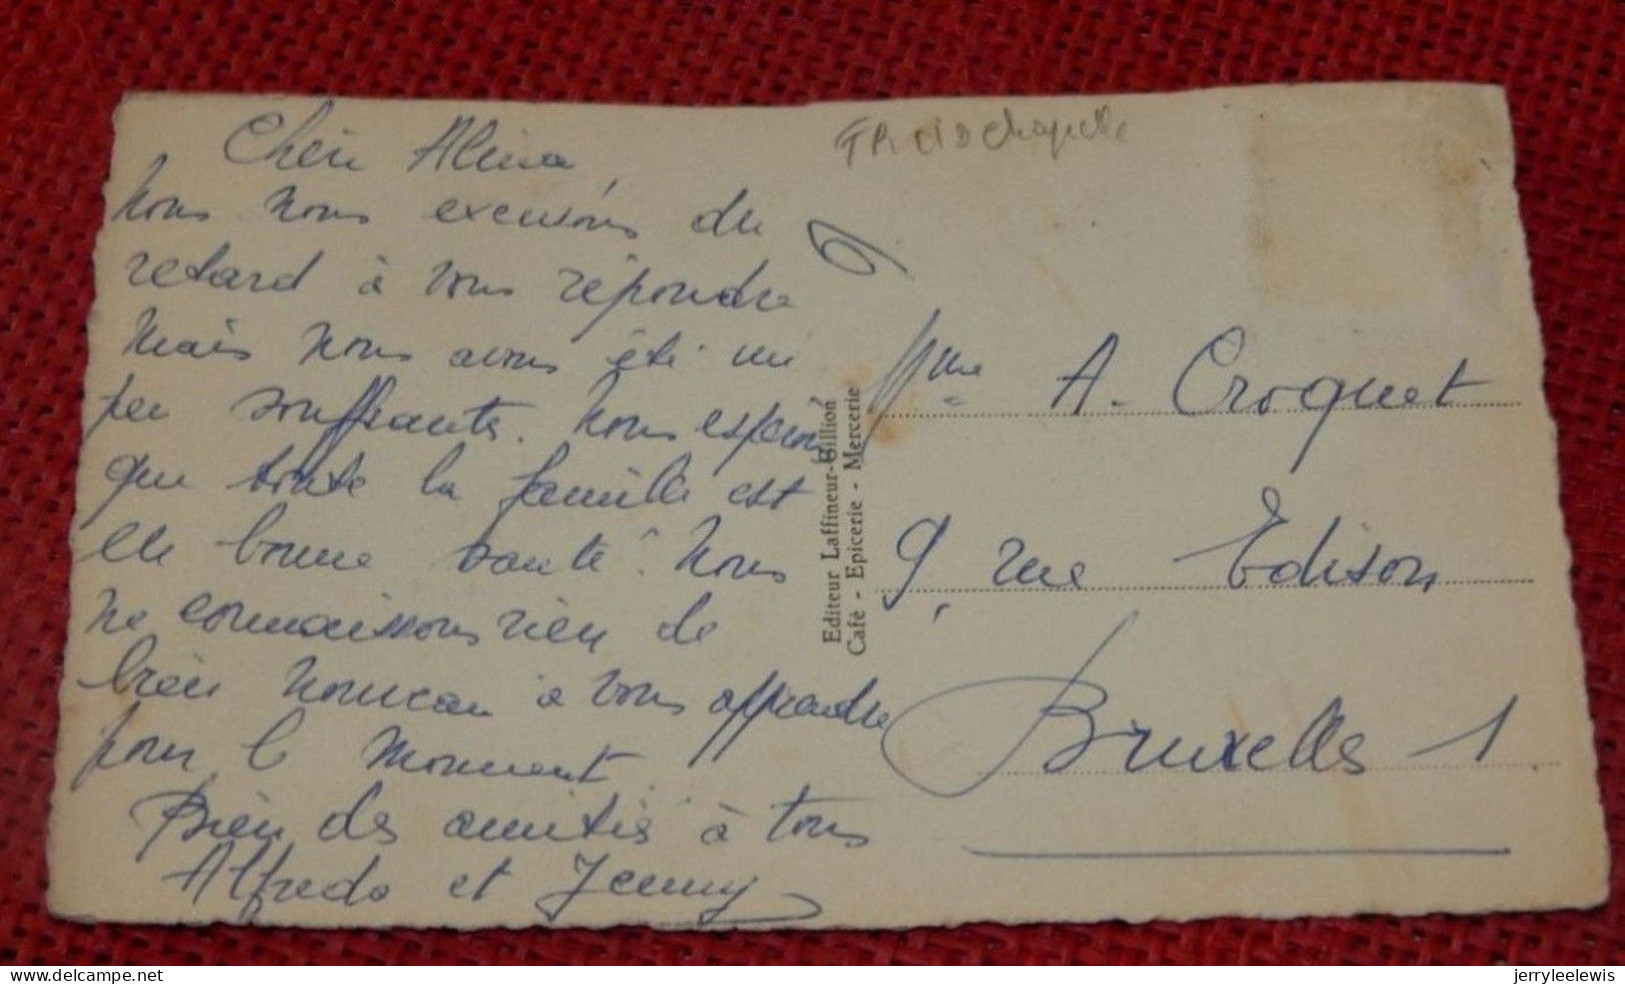 Chère Alina,
Nous nous excusons du
retard à vous répondre
Mais nous avons été un
peu souffrants. Nous espérons
que toute la famille est
en bonne santé. Nous
ne connaissons rien de
bien nouveau à vous apprendre
pour le moment.
Bien des amitiés à tous
Alfredo et Jenny
Editeur Laffineur-Gillion
Café - Epicerie - Mercerie
chapelle
Mme A. Croquet
9, rue Edison
Bruxelles 1
delcampe.net
jerryleelewis